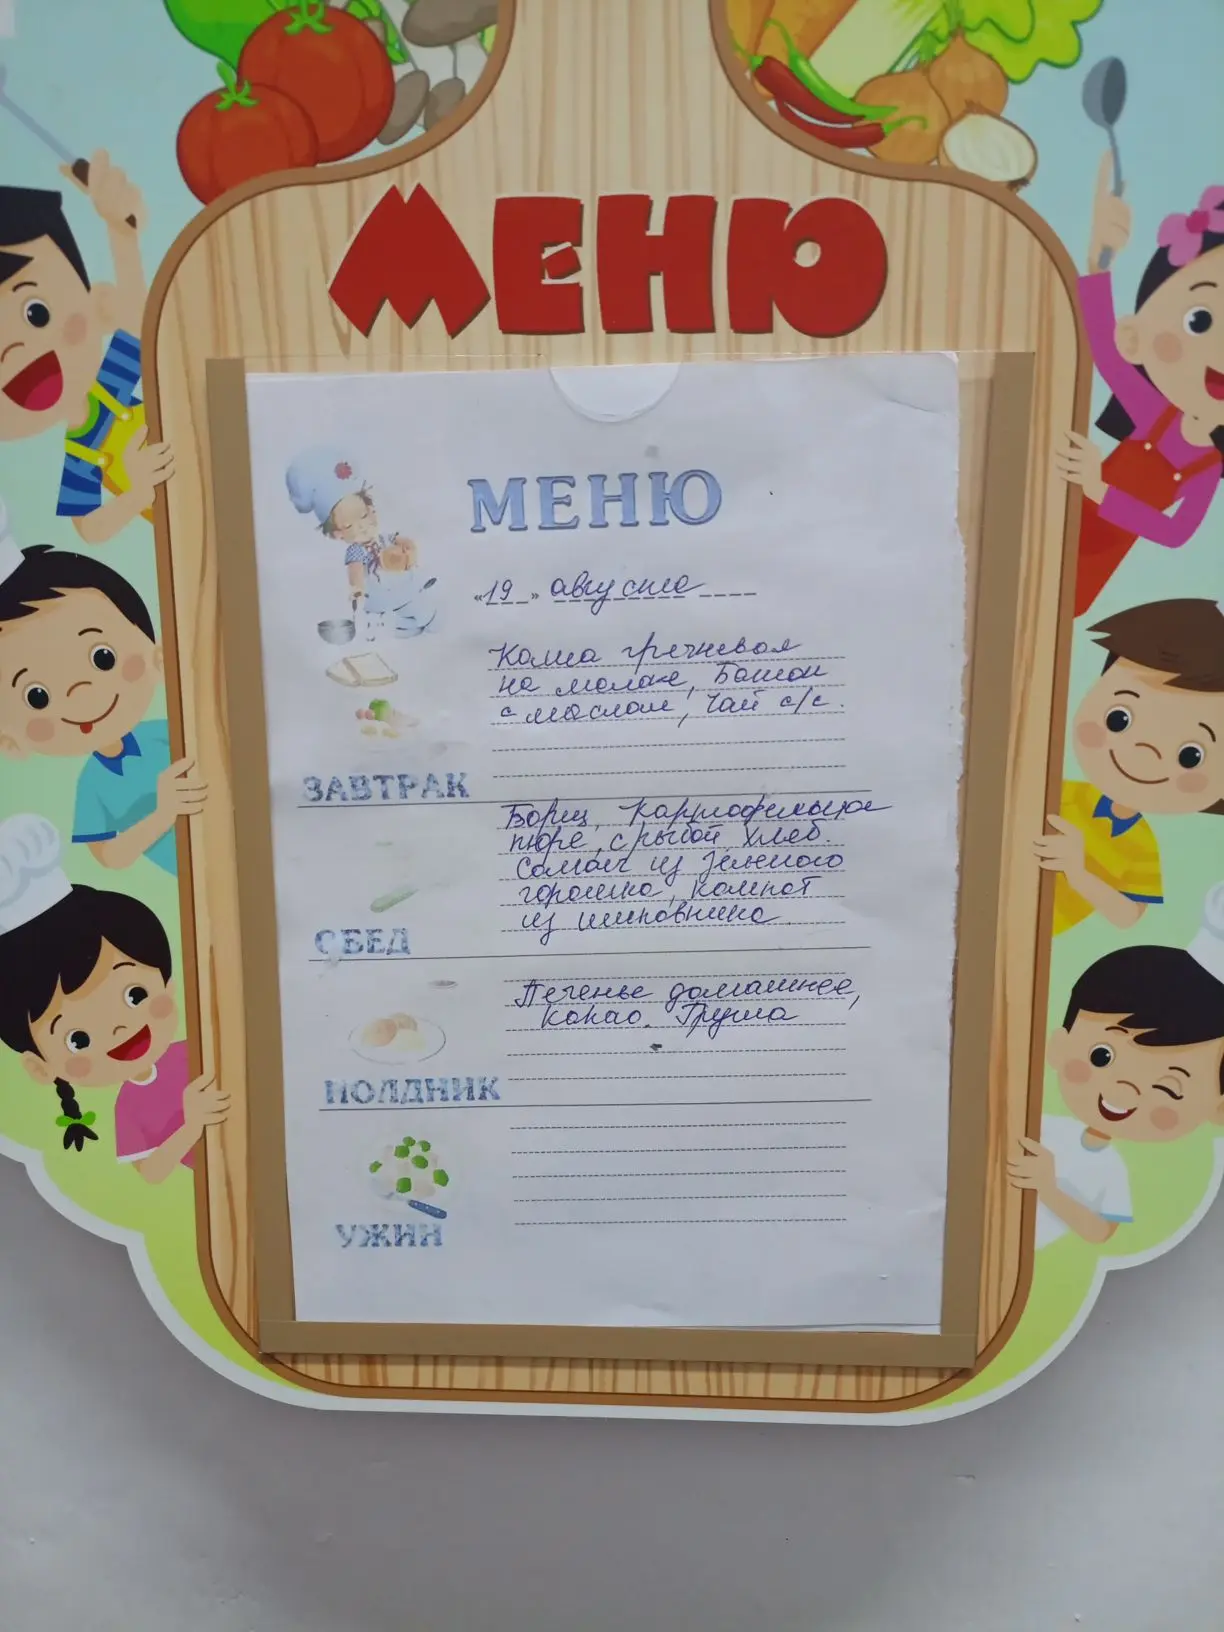 МЕНЮ
МЕНЮ
«19» августа
Каша гречневая
на молоке, Батон
с маслом, чай с/с.
ЗАВТРАК
Борщ, Картофельное
пюре, с рыбой хлеб.
Салат из зеленого
горошка, компот
из шиповника.
ОБЕД
Печенье домашнее,
какао. Груша
ПОЛДНИК
УЖИН